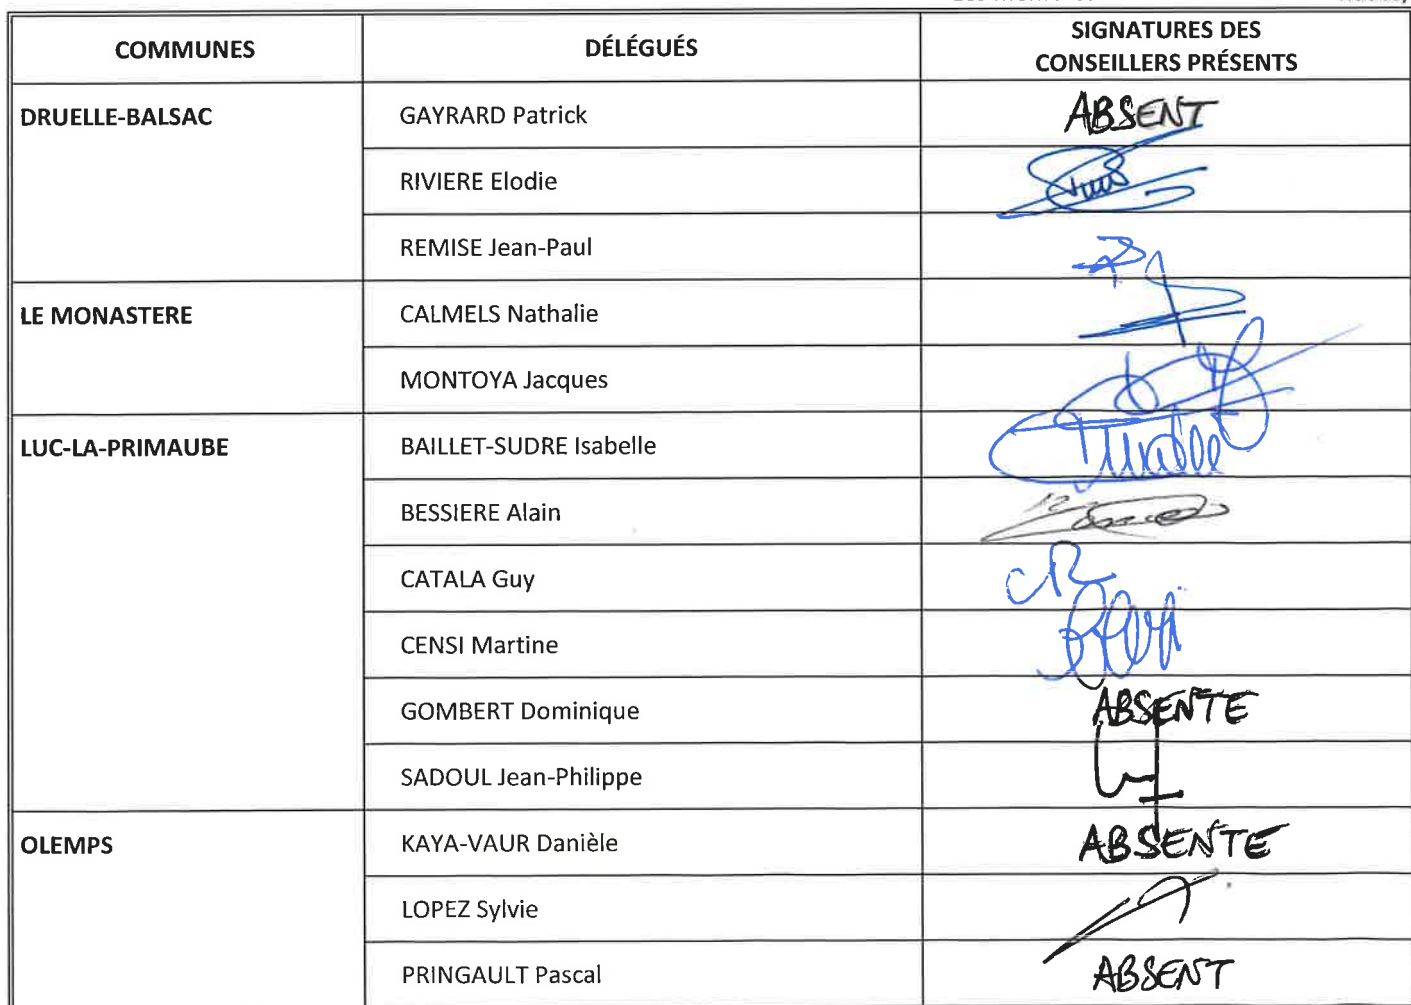 COMMUNES DÉLÉGUÉS SIGNATURES DES
CONSEILLERS PRÉSENTS
DRUELLE-BALSAC GAYRARD Patrick ABSENT
RIVIERE Elodie
REMISE Jean-Paul
LE MONASTERE CALMELS Nathalie
MONTOYA Jacques
LUC-LA-PRIMAUBE BAILLET-SUDRE Isabelle
BESSIERE Alain
CATALA Guy
CENSI Martine
GOMBERT Dominique ABSENTE
SADOUL Jean-Philippe
OLEMPS KAYA-VAUR Danièle ABSENTE
LOPEZ Sylvie
PRINGAULT Pascal ABSENT